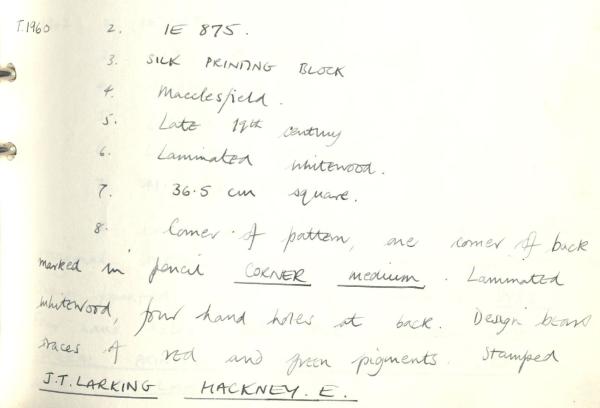 T.1960 2. IE 875.
3. SILK PRINTING BLOCK
4. Macclesfield.
5. Late 19th century
6. Laminated whitewood.
7. 36.5 cm square.
8. Corner of pattern, one corner of back
marked in pencil CORNER medium. Laminated
whitewood, four hand holes at back. Design bears
traces of red and green pigments. Stamped
J.T. LARKING HACKNEY. E.